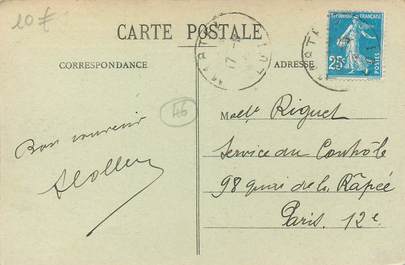 10 €
CARTE POSTALE
CORRESPONDANCE
ADRESSE
RÉPUBLIQUE FRANÇAISE
25c
POSTES
46
Bon souvenir
Melle Riquet
Service du Contrôle
98 quai de la Râpée
Paris. 12e